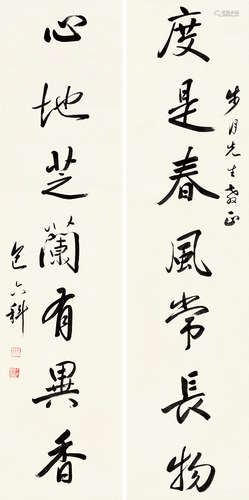 步月先生教正
度是春風常長物
心地芝蘭有異香
包六科